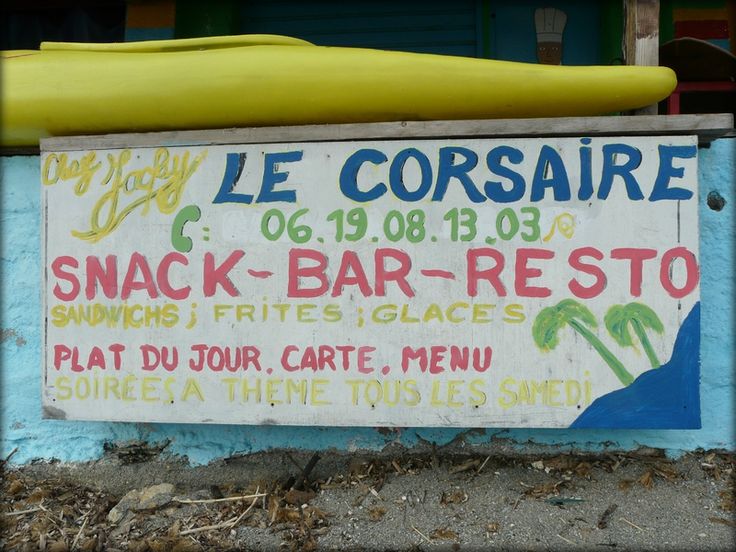 Chez Jacky LE CORSAIRE
: 06.19.08.13.03
SNACK-BAR-RESTO
SANDWICHS; FRITES; GLACES
PLAT DU JOUR. CARTE. MENU
SOIRÉES A THÈME TOUS LES SAMEDI